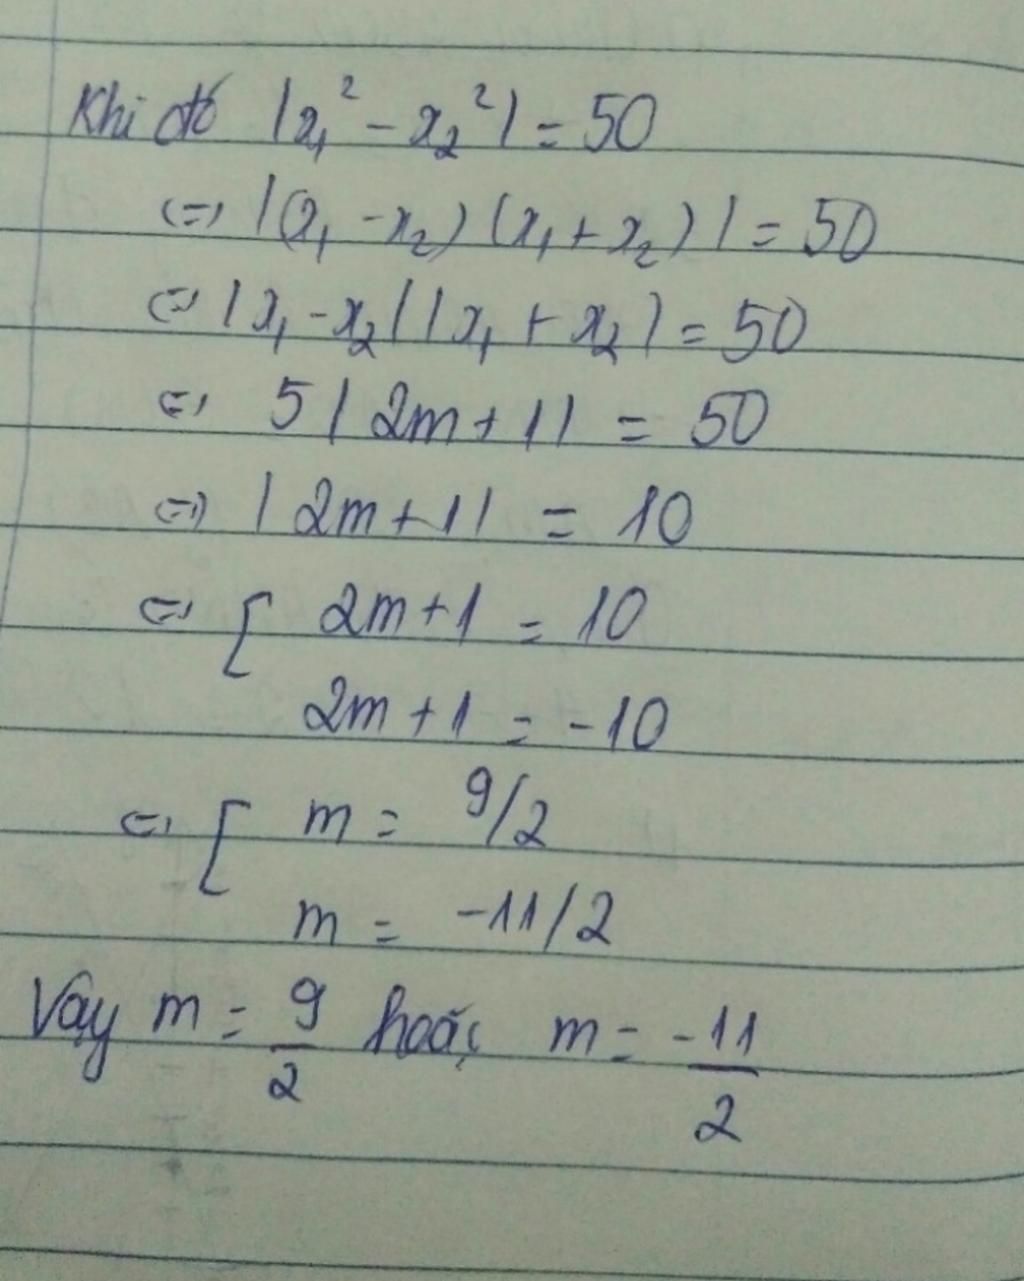 Khi đó |x₁² - x₂²| = 50
<=> |(x₁ - x₂)(x₁ + x₂)| = 50
<=> |x₁ - x₂||x₁ + x₂| = 50
<=> 5|2m + 1| = 50
<=> |2m + 1| = 10
<=> [ 2m + 1 = 10
2m + 1 = -10
<=> [ m = 9/2
m = -11/2
Vậy m = 9/2 hoặc m = -11/2